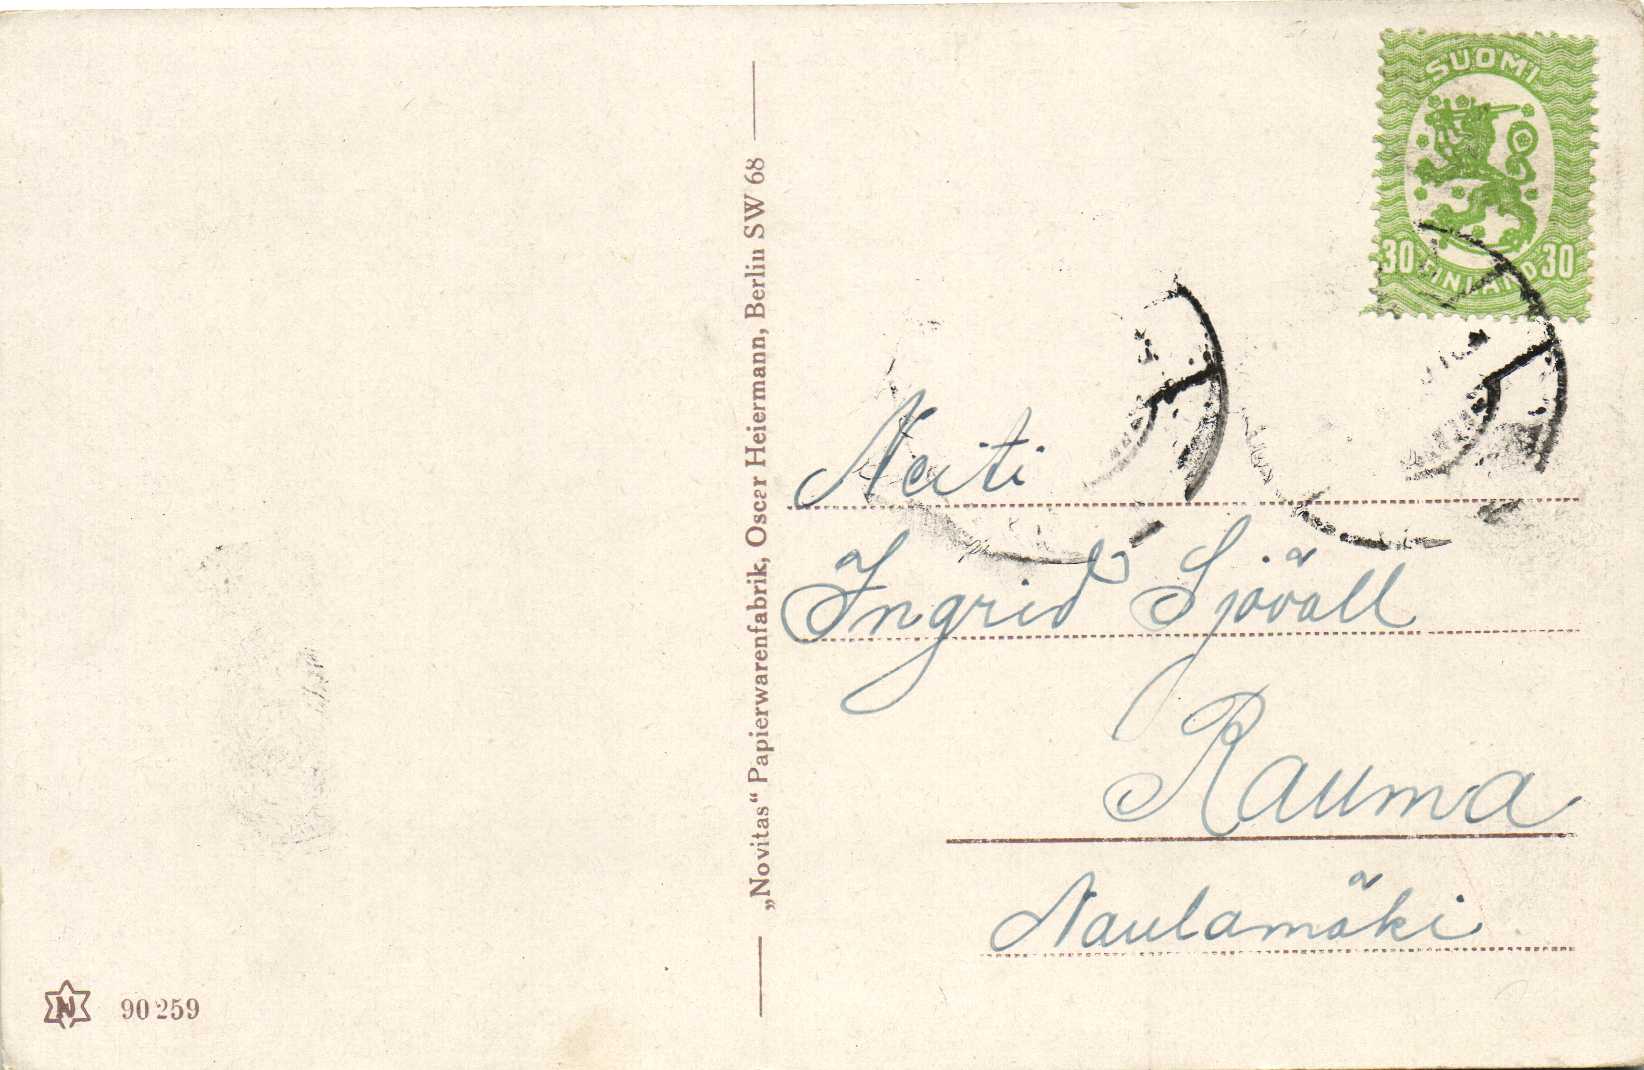 SUOMI
30 FINLAND 30
„Novitas“ Papierwarenfabrik, Oscar Heiermann, Berlin SW 68
Neiti
Ingrid Sjövall
Rauma
Naulamäki
N 90259